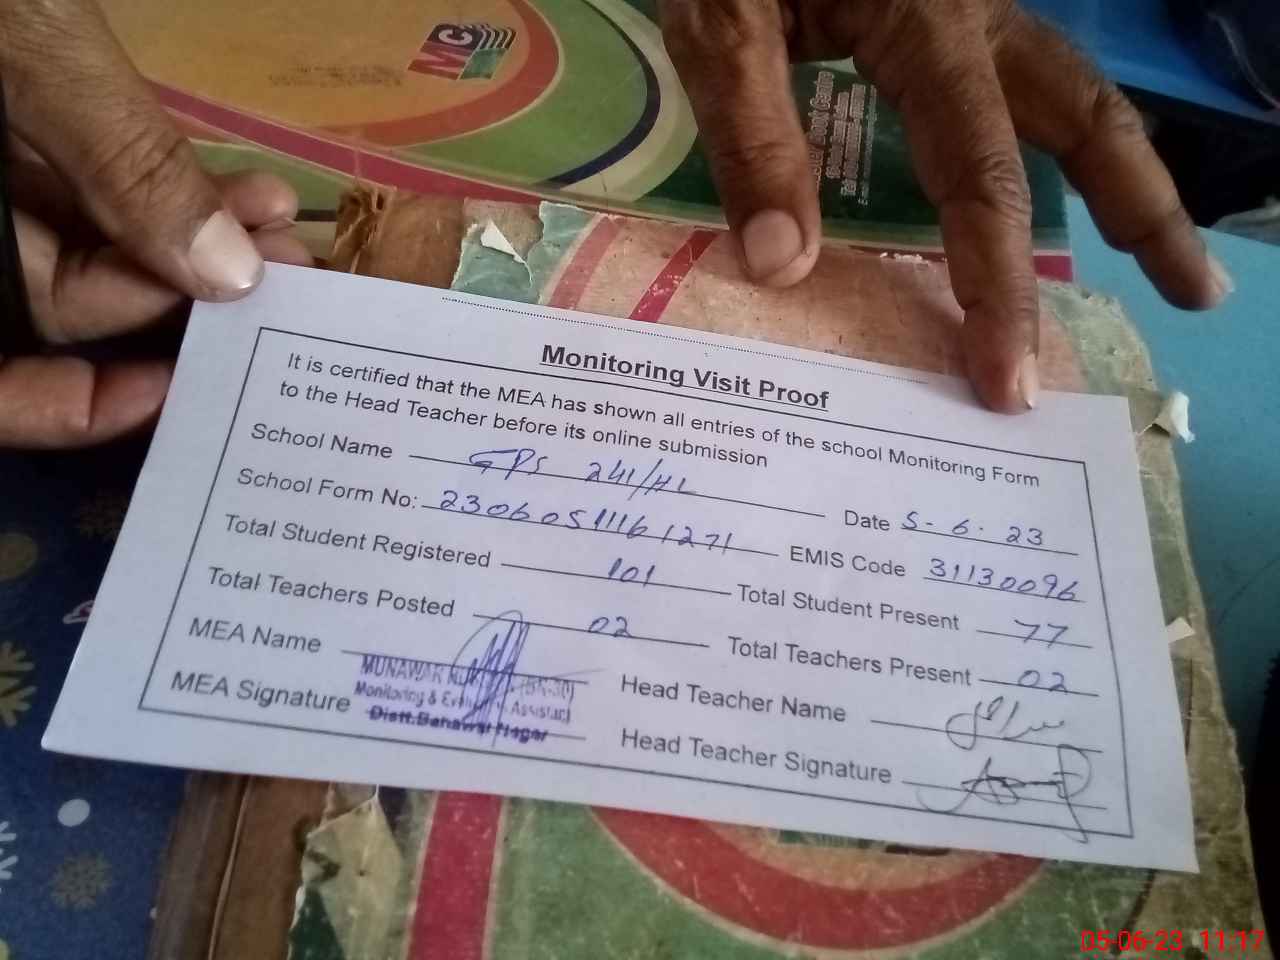 MCB
Book Centre
Monitoring Visit Proof
It is certified that the MEA has shown all entries of the school Monitoring Form
to the Head Teacher before its online submission
School Name GPS 241/HL Date 5-6-23
School Form No: 23060511161271 EMIS Code 31130096
Total Student Registered 101 Total Student Present 77
Total Teachers Posted 02 Total Teachers Present 02
MEA Name Head Teacher Name
MUNAWAR
Monitoring & Assistant
MEA Signature Distt.Bahawalnagar Head Teacher Signature
05-06-23 11:17